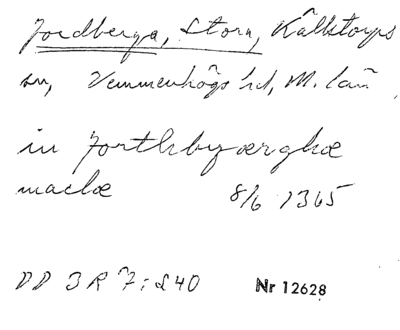 Jordberga, Stora, Källstorps
sn, Vemmenhögs hd, M. län
in Jorthbyærghæ
maclæ 8/6 1365
DD 3 R 7: s 40 Nr 12628